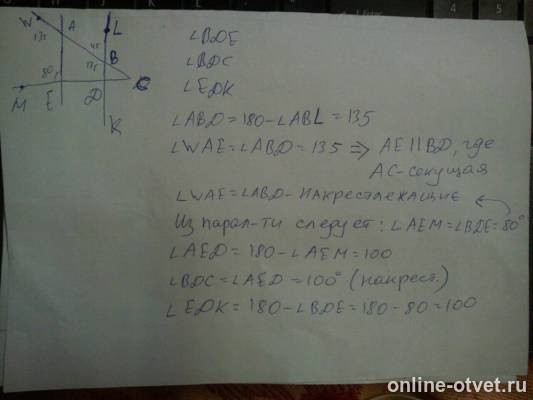 W
A
L
135
45
B
135
C
80°
M
E
D
K
∠BDE
∠BDC
∠EDK
∠ABD = 180 - ∠ABL = 135
∠WAE = ∠ABD = 135 ⇒ AE || BD, где
AC - секущая
∠WAE = ∠ABD - накрестлежащие
Из парал-ти следует: ∠AEM = ∠BDE = 80°
∠AED = 180 - ∠AEM = 100
∠BDC = ∠AED = 100° (накрест.)
∠EDK = 180 - ∠BDE = 180 - 80 = 100
online-otvet.ru